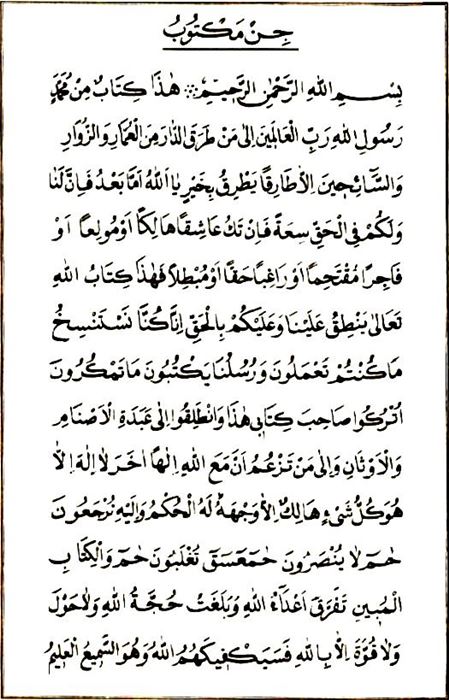 جِنْ مَكْتُوبُ
بِسْمِ اللهِ الرَّحْمٰنِ الرَّحِيمِ ؞ هٰذَا كِتَابٌ مِنْ مُحَمَّدٍ
رَسُولِ اللهِ رَبِّ الْعَالَمِينَ اِلٰى مَنْ طَرَقَ الدَّارَ مِنَ الْعُمَّارِ وَالزُّوَّارِ
وَالسَّائِحِينَ اِلَّا طَارِقًا يَطْرِقُ بِخَيْرٍ يَا اَللهُ اَمَّا بَعْدُ فَاِنَّ لَنَا
وَلَكُمْ فِى الْحَقِّ سِعَةً فَاِنْ تَكُ عَاشِقًا هَالِكًا اَوْ مُولِعًا اَوْ
فَاجِرًا مُقْتَحِمًا اَوْ رَاغِبًا حَقًّا اَوْ مُبْطِلًا فَهٰذَا كِتَابُ اللهِ
تَعَالٰى يَنْطِقُ عَلَيْنَا وَعَلَيْكُمْ بِالْحَقِّ اِنَّا كُنَّا نَسْتَنْسِخُ
مَا كُنْتُمْ تَعْمَلُونَ وَرُسُلُنَا يَكْتُبُونَ مَا تَمْكُرُونَ
اُتْرُكُوا صَاحِبَ كِتَابِى هٰذَا وَانْطَلِقُوا اِلٰى عَبَدَةِ الْاَصْنَامِ
وَالْاَوْثَانِ وَاِلٰى مَنْ تَزْعُمُ اَنَّ مَعَ اللهِ اِلٰهًا اٰخَرَ لٰا اِلٰهَ اِلَّا
هُوَ كُلُّ شَىْءٍ هَالِكٌ اِلَّا وَجْهَهُ لَهُ الْحُكْمُ وَاِلَيْهِ تُرْجَعُونَ
حٰمٓ لَا يُنْصَرُونَ حٰمٓعٓسٓقٓ تُغْلَبُونَ حٰمٓ وَالْكِتَابِ
الْمُبِينِ تَفَرَّقَ اَعْدَٓاءُ اللهِ وَبَلَغَتْ حُجَّةُ اللهِ وَلَا حَوْلَ
وَلَا قُوَّةَ اِلَّا بِاللهِ فَسَيَكْفِيكَهُمُ اللهُ وَهُوَ السَّمِيعُ الْعَلِيمُ